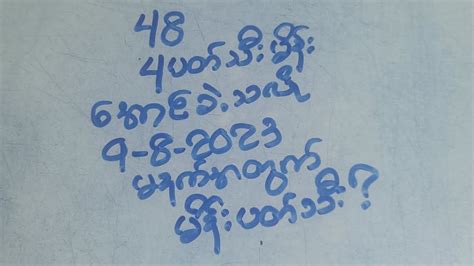 48
4ပတ်သီးမိန်း
အောင်ခဲ့သလို
9-8-2023
မနက်အတွက်
မိန်းပတ်သီး?